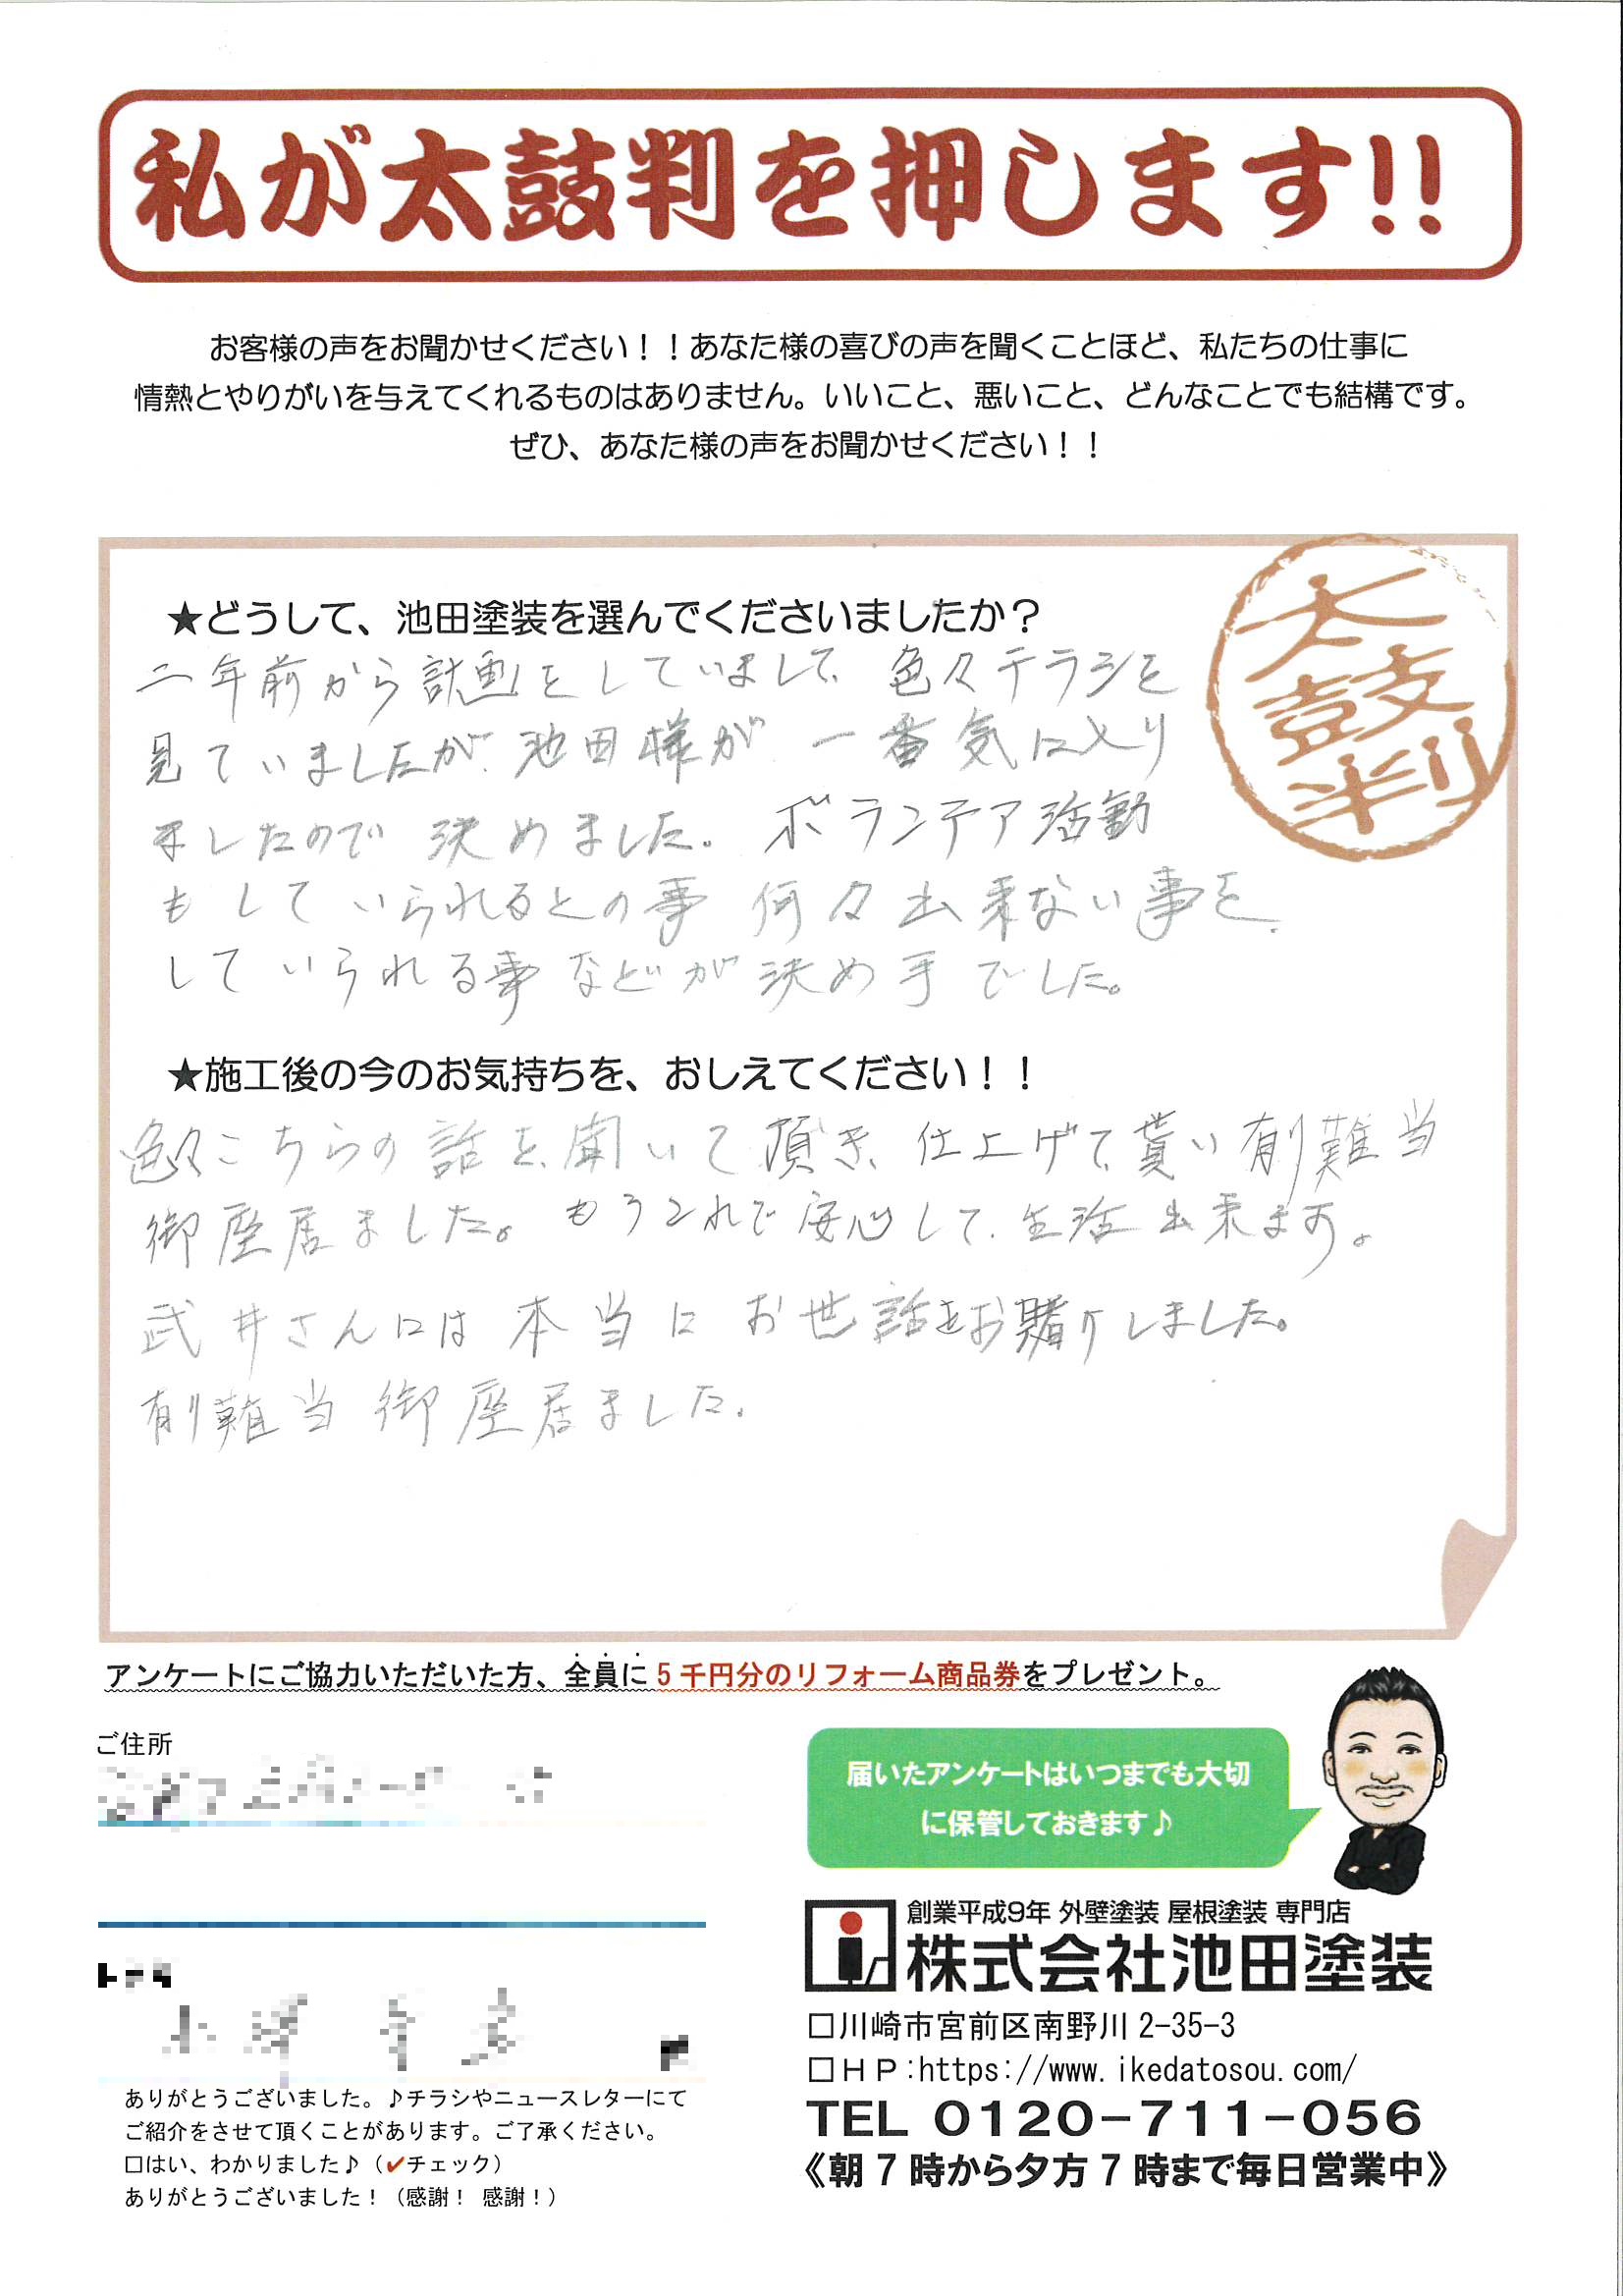 私が太鼓判を押します!!
お客様の声をお聞かせください！！あなた様の喜びの声を聞くことほど、私たちの仕事に
情熱とやりがいを与えてくれるものはありません。いいこと、悪いこと、どんなことでも結構です。
ぜひ、あなた様の声をお聞かせください！！
太鼓判
★どうして、池田塗装を選んでくださいましたか？
二年前から計画をしていまして、色々チラシを
見ていましたが、池田様が一番気に入り
ましたので決めました。ボランテア活動
もしていられるとの事 何々出来ない事を、
していられる事などが決め手でした。
★施工後の今のお気持ちを、おしえてください！！
色々こちらの話を聞いて頂き、仕上げて貰い有難当
御座居ました。もうこれで安心して、生活出来ます。
武井さんには本当にお世話をお賭けしました。
有難当御座居ました。
アンケートにご協力いただいた方、全員に5千円分のリフォーム商品券をプレゼント。
ご住所
届いたアンケートはいつまでも大切
に保管しておきます♪
創業平成9年 外壁塗装 屋根塗装 専門店
株式会社池田塗装
□川崎市宮前区南野川2-35-3
□ＨＰ:https://www.ikedatosou.com/
TEL 0120-711-056
《朝7時から夕方7時まで毎日営業中》
ありがとうございました。♪チラシやニュースレターにて
ご紹介をさせて頂くことがあります。ご了承ください。
□はい、わかりました♪（✔チェック）
ありがとうございました！（感謝！ 感謝！）